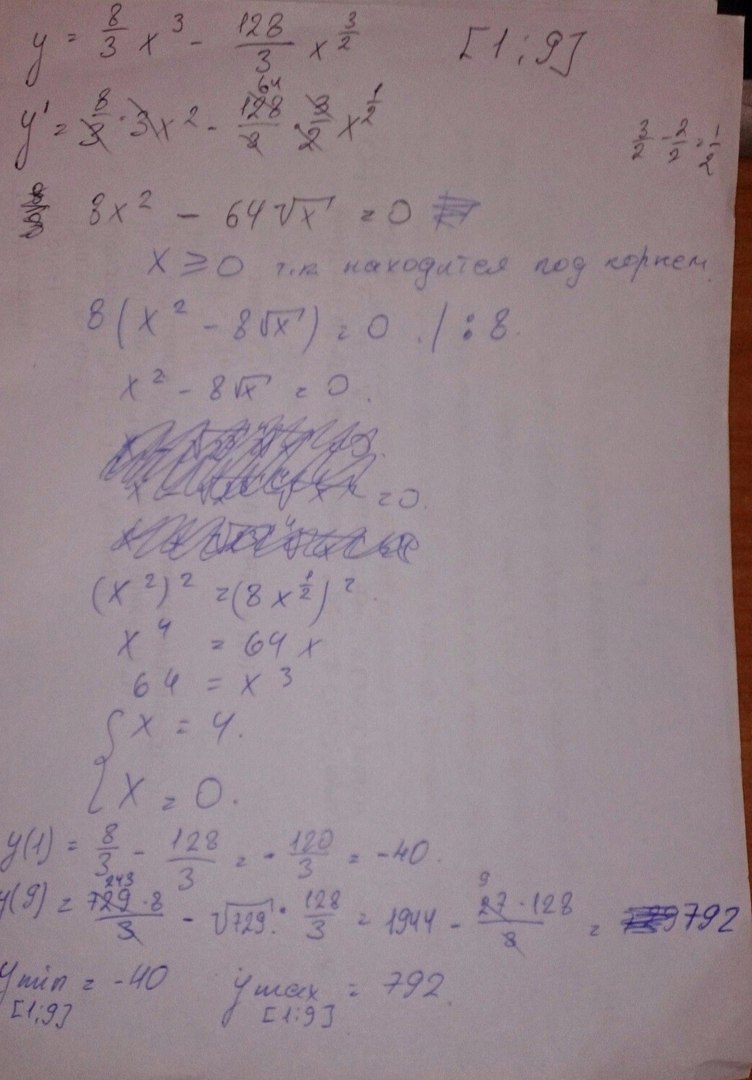 y = 8/3 x³ - 128/3 x^(3/2) [1;9]
y' = 8/3 · 3x² - 128/2 · 3/2 x^(1/2) 64
3/2 - 2/2 = 1/2
8x² - 64√x = 0
x ≥ 0 т.к находится под корнем.
8(x² - 8√x) = 0. | : 8.
x² - 8√x = 0.
= 0.
(x²)² = (8x^(1/2))².
x⁴ = 64x
64 = x³
{ x = 4.
x = 0.
y(1) = 8/3 - 128/3 = - 120/3 = -40.
y(9) = 729·8/3 243 - √729 · 128/3 = 1944 - 27·128/3 9 = 792
y min = -40 y max = 792.
[1;9] [1;9]